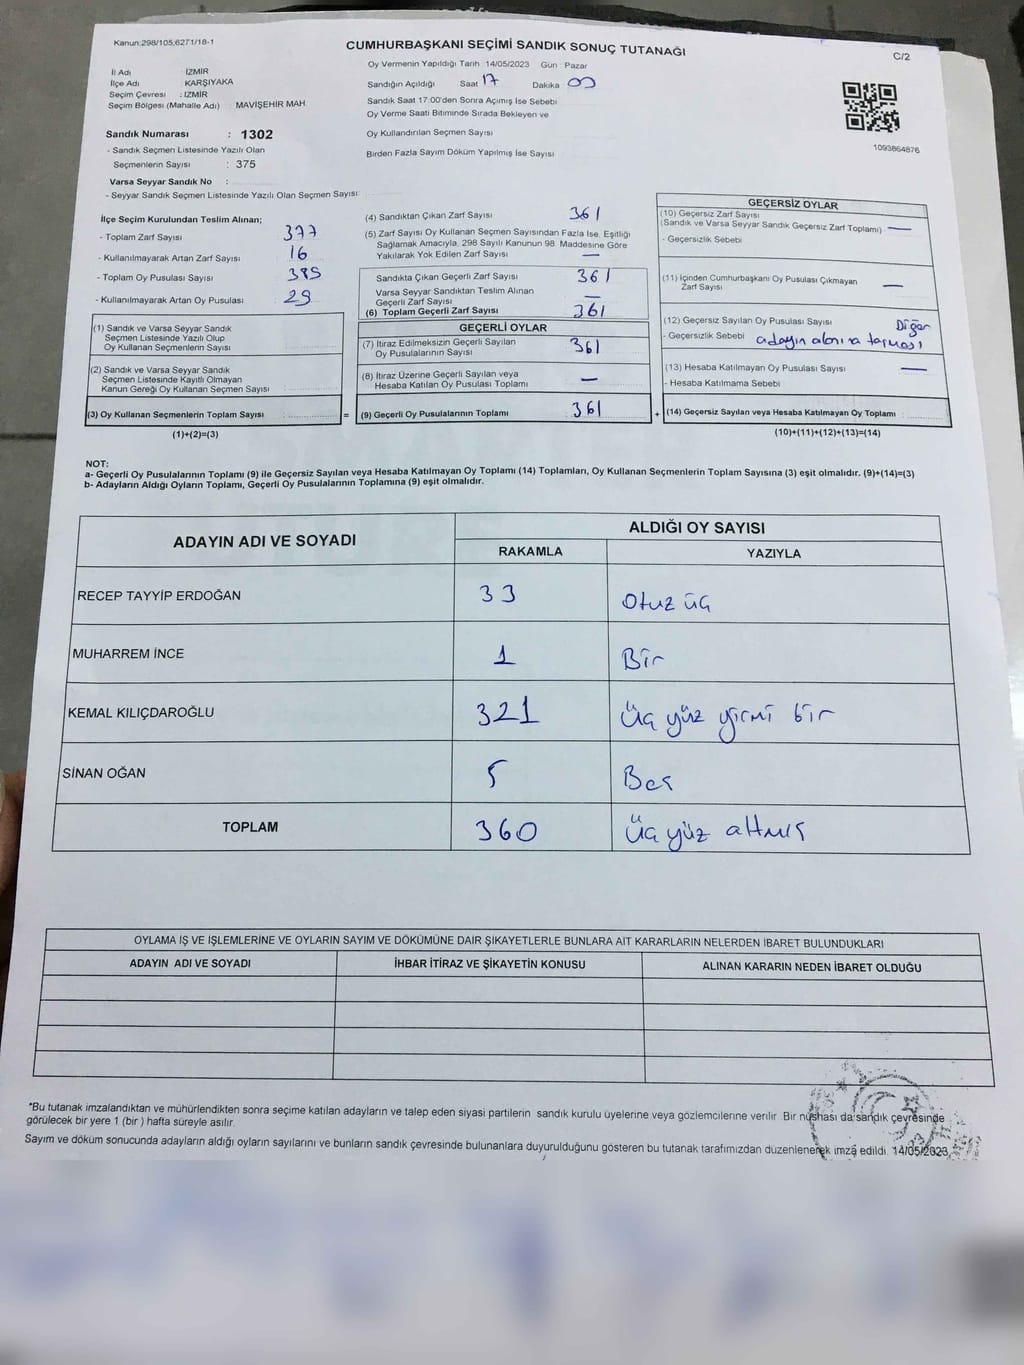 Kanun:298/105,6271/18-1
CUMHURBAŞKANI SEÇİMİ SANDIK SONUÇ TUTANAĞI
C/2
İl Adı : İZMİR
İlçe Adı : KARŞIYAKA
Seçim Çevresi : İZMİR
Seçim Bölgesi (Mahalle Adı) : MAVİŞEHİR MAH.
Oy Vermenin Yapıldığı Tarih 14/05/2023 Gün : Pazar
Sandığın Açıldığı Saat 17 Dakika 00
Sandık Saat 17:00'den Sonra Açımış İse Sebebi
Oy Verme Saati Bitiminde Sırada Bekleyen ve
Oy Kullandırılan Seçmen Sayısı
Birden Fazla Sayım Döküm Yapılmış İse Sayısı
1093864876
Sandık Numarası : 1302
- Sandık Seçmen Listesinde Yazılı Olan
Seçmenlerin Sayısı : 375
Varsa Seyyar Sandık No :
- Seyyar Sandık Seçmen Listesinde Yazılı Olan Seçmen Sayısı:
İlçe Seçim Kurulundan Teslim Alınan;
- Toplam Zarf Sayısı 377
- Kullanılmayarak Artan Zarf Sayısı 16
- Toplam Oy Pusulası Sayısı 385
- Kullanılmayarak Artan Oy Pusulası 25
(1) Sandık ve Varsa Seyyar Sandık
Seçmen Listesinde Yazılı Olup
Oy Kullanan Seçmenlerin Sayısı
(2) Sandık ve Varsa Seyyar Sandık
Seçmen Listesinde Kayıtlı Olmayan
Kanun Gereği Oy Kullanan Seçmen Sayısı
(3) Oy Kullanan Seçmenlerin Toplam Sayısı :
(1)+(2)=(3)
(4) Sandıktan Çıkan Zarf Sayısı 361
(5) Zarf Sayısı Oy Kullanan Seçmen Sayısından Fazla İse, Eşitliği
Sağlamak Amacıyla, 298 Sayılı Kanunun 98. Maddesine Göre
Yakılarak Yok Edilen Zarf Sayısı —
Sandıkta Çıkan Geçerli Zarf Sayısı 361
Varsa Seyyar Sandıktan Teslim Alınan
Geçerli Zarf Sayısı —
(6) Toplam Geçerli Zarf Sayısı 361
GEÇERLİ OYLAR
(7) İtiraz Edilmeksizin Geçerli Sayılan
Oy Pusulalarının Sayısı 361
(8) İtiraz Üzerine Geçerli Sayılan veya
Hesaba Katılan Oy Pusulası Toplamı —
= (9) Geçerli Oy Pusulalarının Toplamı 361
GEÇERSİZ OYLAR
(10) Geçersiz Zarf Sayısı
(Sandık ve Varsa Seyyar Sandık Geçersiz Zarf Toplamı) —
- Geçersizlik Sebebi
(11) İçinden Cumhurbaşkanı Oy Pusulası Çıkmayan
Zarf Sayısı —
(12) Geçersiz Sayılan Oy Pusulası Sayısı Diğer
- Geçersizlik Sebebi adayın alanına taşması
(13) Hesaba Katılmayan Oy Pusulası Sayısı —
- Hesaba Katılmama Sebebi
+ (14) Geçersiz Sayılan veya Hesaba Katılmayan Oy Toplamı :
(10)+(11)+(12)+(13)=(14)
NOT:
a- Geçerli Oy Pusulalarının Toplamı (9) ile Geçersiz Sayılan veya Hesaba Katılmayan Oy Toplamı (14) Toplamları, Oy Kullanan Seçmenlerin Toplam Sayısına (3) eşit olmalıdır. (9)+(14)=(3)
b- Adayların Aldığı Oyların Toplamı, Geçerli Oy Pusulalarının Toplamına (9) eşit olmalıdır.
ADAYIN ADI VE SOYADI
ALDIĞI OY SAYISI
RAKAMLA YAZIYLA
RECEP TAYYİP ERDOĞAN 33 Otuz üç
MUHARREM İNCE 1 Bir
KEMAL KILIÇDAROĞLU 321 üç yüz yirmi bir
SİNAN OĞAN 5 Beş
TOPLAM 360 üç yüz altmış
OYLAMA İŞ VE İŞLEMLERİNE VE OYLARIN SAYIM VE DÖKÜMÜNE DAİR ŞİKAYETLERLE BUNLARA AİT KARARLARIN NELERDEN İBARET BULUNDUKLARI
ADAYIN ADI VE SOYADI İHBAR İTİRAZ VE ŞİKAYETİN KONUSU ALINAN KARARIN NEDEN İBARET OLDUĞU
*Bu tutanak imzalandıktan ve mühürlendikten sonra seçime katılan adayların ve talep eden siyasi partilerin sandık kurulu üyelerine veya gözlemcilerine verilir. Bir nüshası da sandık çevresinde
görülecek bir yere 1 (bir) hafta süreyle asılır.
Sayım ve döküm sonucunda adayların aldığı oyların sayılarını ve bunların sandık çevresinde bulunanlara duyurulduğunu gösteren bu tutanak tarafımızdan düzenlenerek imza edildi. 14/05/2023